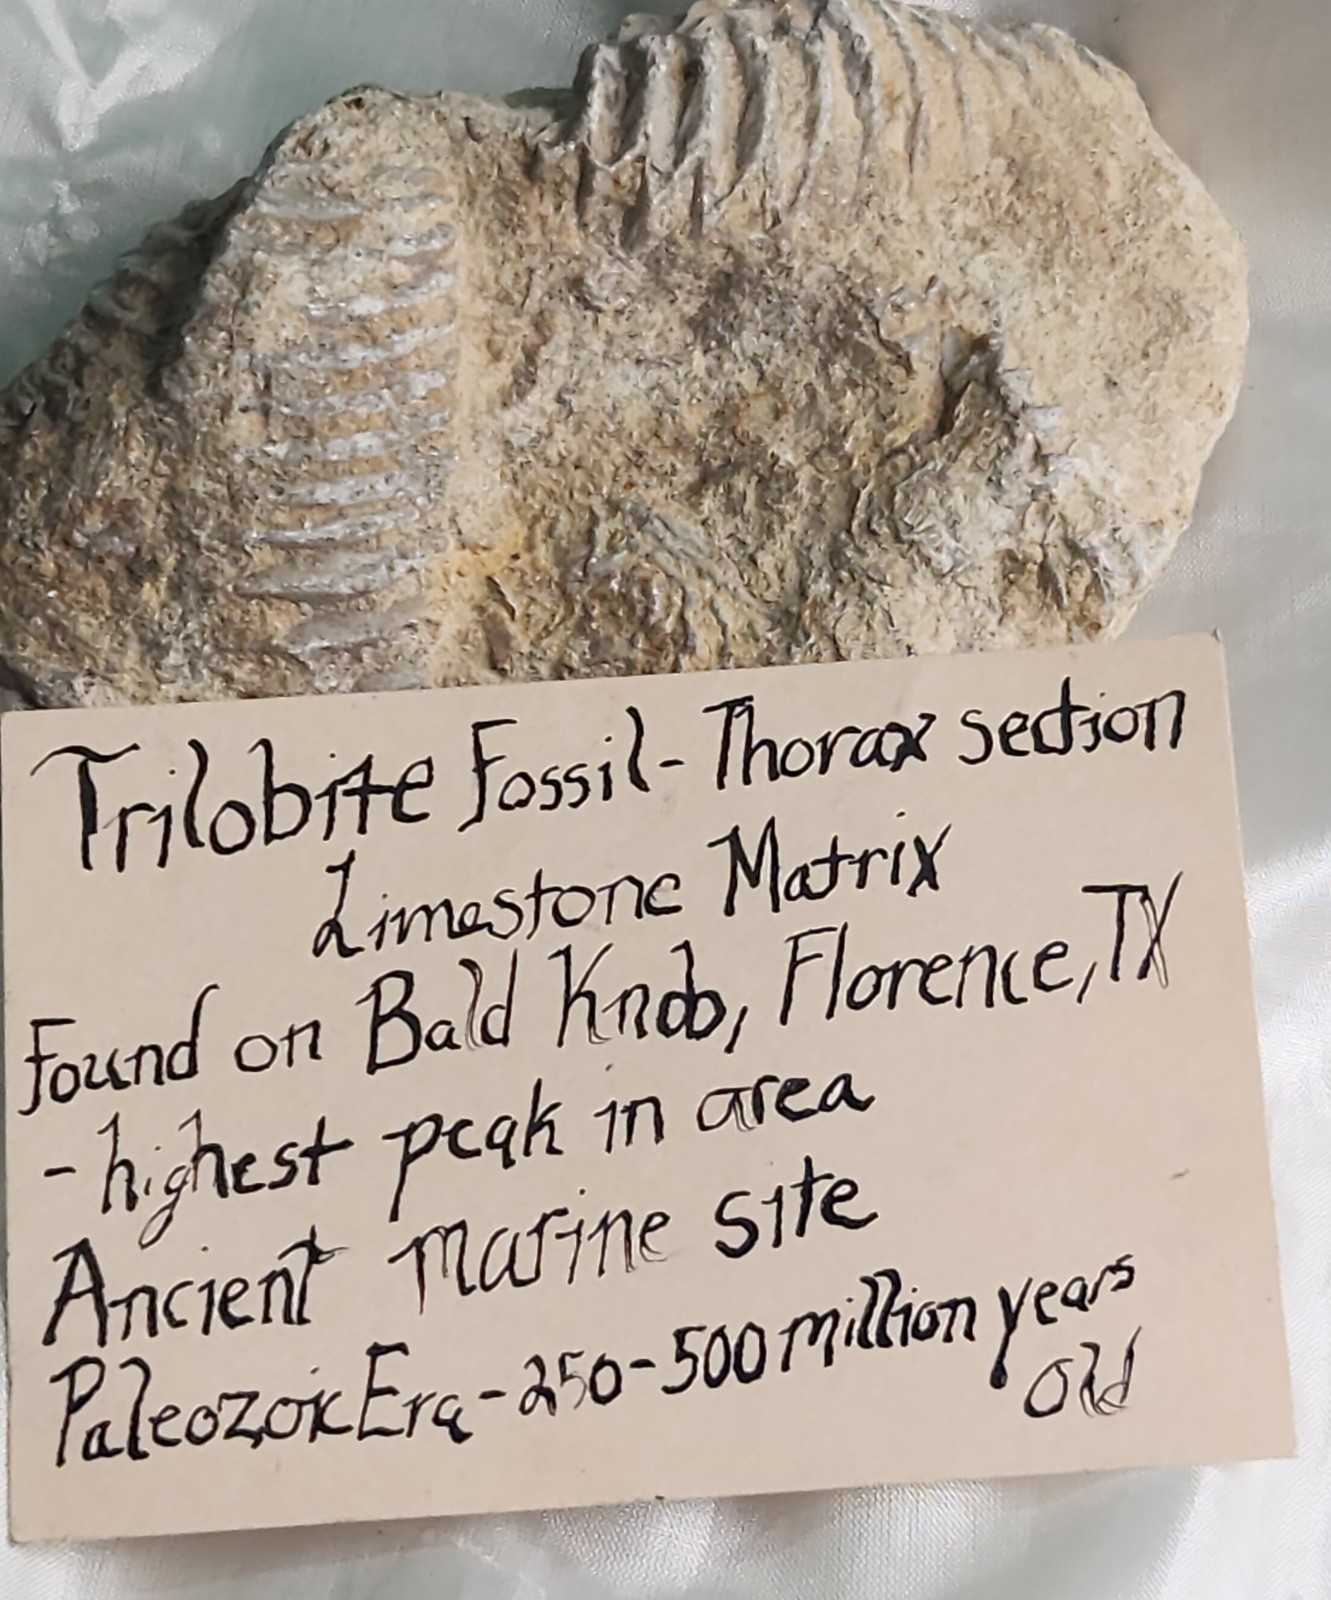 Trilobite Fossil - Thorax section
Limestone Matrix
Found on Bald Knob, Florence, TX
- highest peak in area
Ancient marine site
Paleozoic Era - 250-500 million years
old